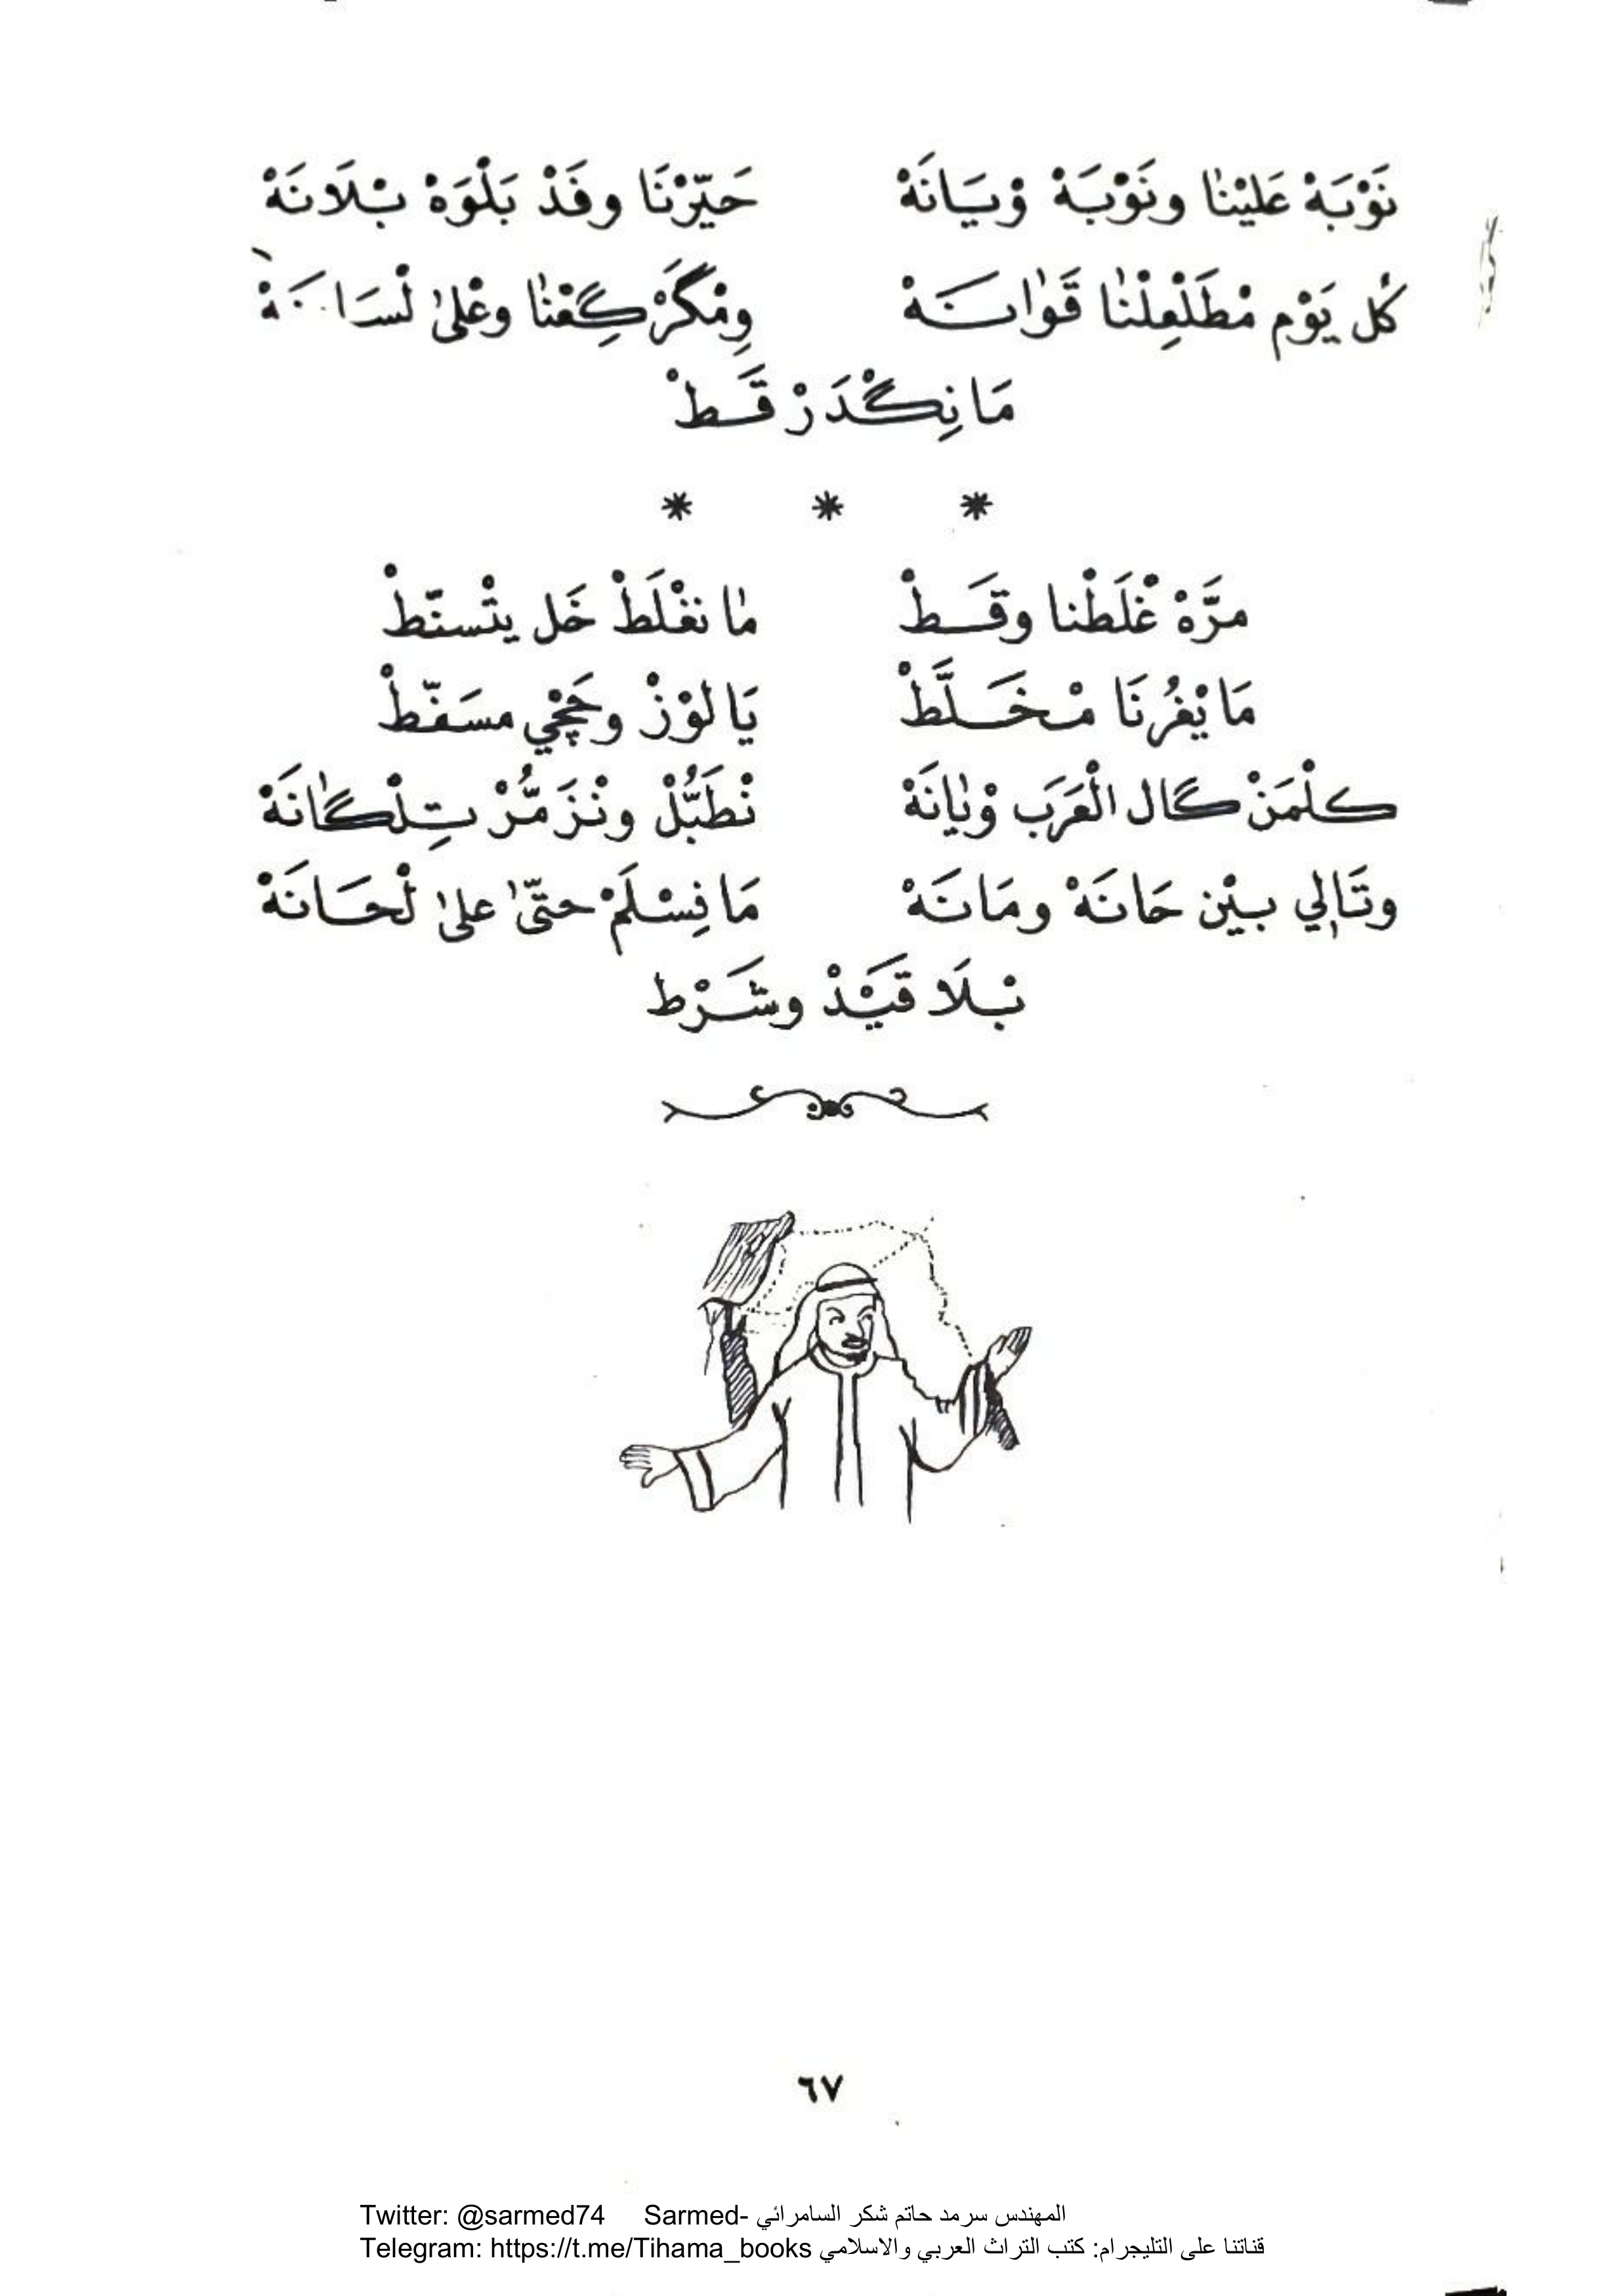 نَوْبَهْ عَلَيْنٰا ونَوْبَهْ وْيَانَهْ حَيّرْنَا وفَدْ بَلْوَهْ بْلَانَهْ
كُل يَوْم مْطَلْعِلْنٰا قَوٰانَهْ وِمْكَرْكِعْنٰا وعْلىٰ لْسَانَهْ
مَا نِگْدَرْ قَطْ
* * *
مرَّهْ غْلَطْنا وقَطْ مٰا نغْلَطْ خَل يتْسنّطْ
مَا يْغُرْنَا مْخَلَّطْ يَا لوْزْ وحَچْي مسَفّطْ
كلْمَنْ گال الْعَرَب وْيٰانَهْ نْطَبُّلْ ونْزَمُّرْ تِلْگانَهْ
وتَالِي بيْن حَانَهْ ومَانَهْ مَا نِسْلَمْ حتىّٰ علىٰ لْحَانَهْ
بْلَا قَيْدْ وشَرْط
٦٧
Twitter: @sarmed74 Sarmed- المهندس سرمد حاتم شكر السامرائي
Telegram: https://t.me/Tihama_books قناتنا على التليجرام: كتب التراث العربي والاسلامي